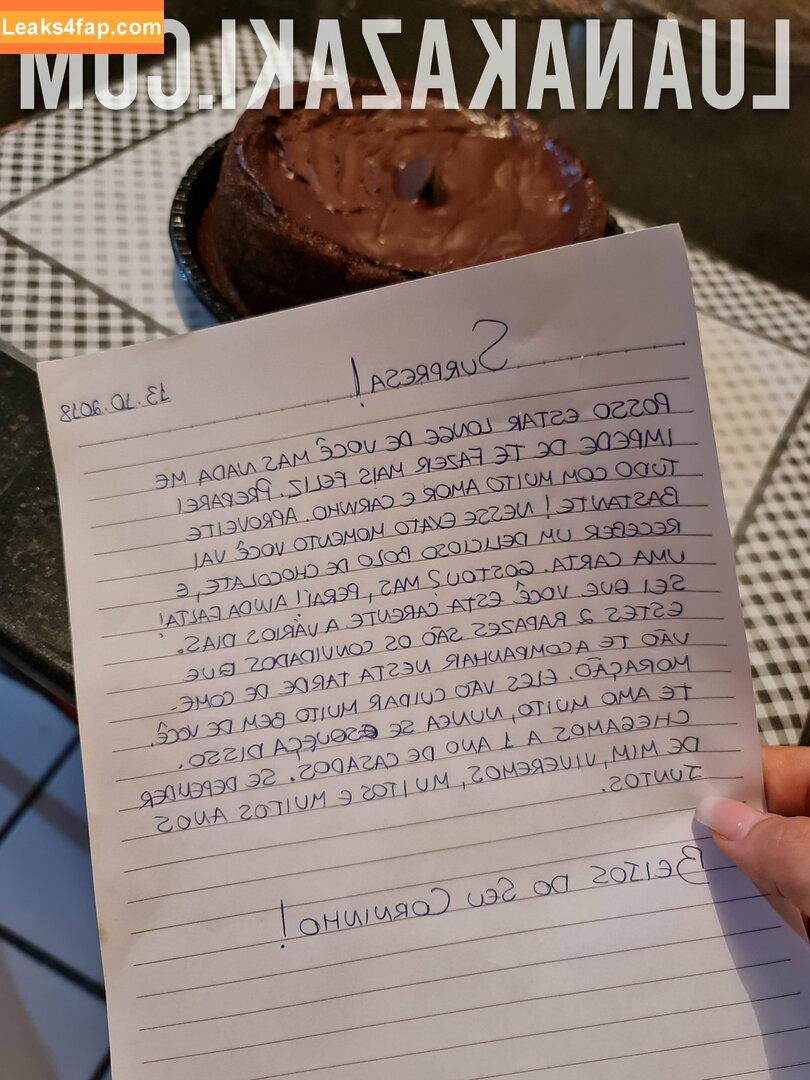 Leaks4fap.com
LUANAKAZAKI.COM
Surpresa!
13.10.2018
POSSO ESTAR LONGE DE VOCÊ MAS NADA ME
IMPEDE DE TE FAZER MAIS FELIZ. PREPAREI
TUDO COM MUITO AMOR E CARINHO. APROVEITE
BASTANTE! NESSE EXATO MOMENTO VOCÊ VAI
RECEBER UM DELICIOSO BOLO DE CHOCOLATE, E
UMA CARTA. GOSTOU? MAS, PERAÍ! AINDA FALTA!
SEI QUE VOCÊ ESTA CARENTE A VÁRIOS DIAS.
ESTES 2 RAPAZES SÃO OS CONVIDADOS QUE
VÃO TE ACOMPANHAR NESTA TARDE DE COME-
MORAÇÃO. ELES VÃO CUIDAR MUITO BEM DE VOCÊ.
TE AMO MUITO, NUNCA SE ESQUEÇA DISSO.
CHEGAMOS A 1 ANO DE CASADOS. SE DEPENDER
DE MIM, VIVEREMOS, MUITOS E MUITOS ANOS
JUNTOS.
BEIJOS DO SEU CORNINHO!